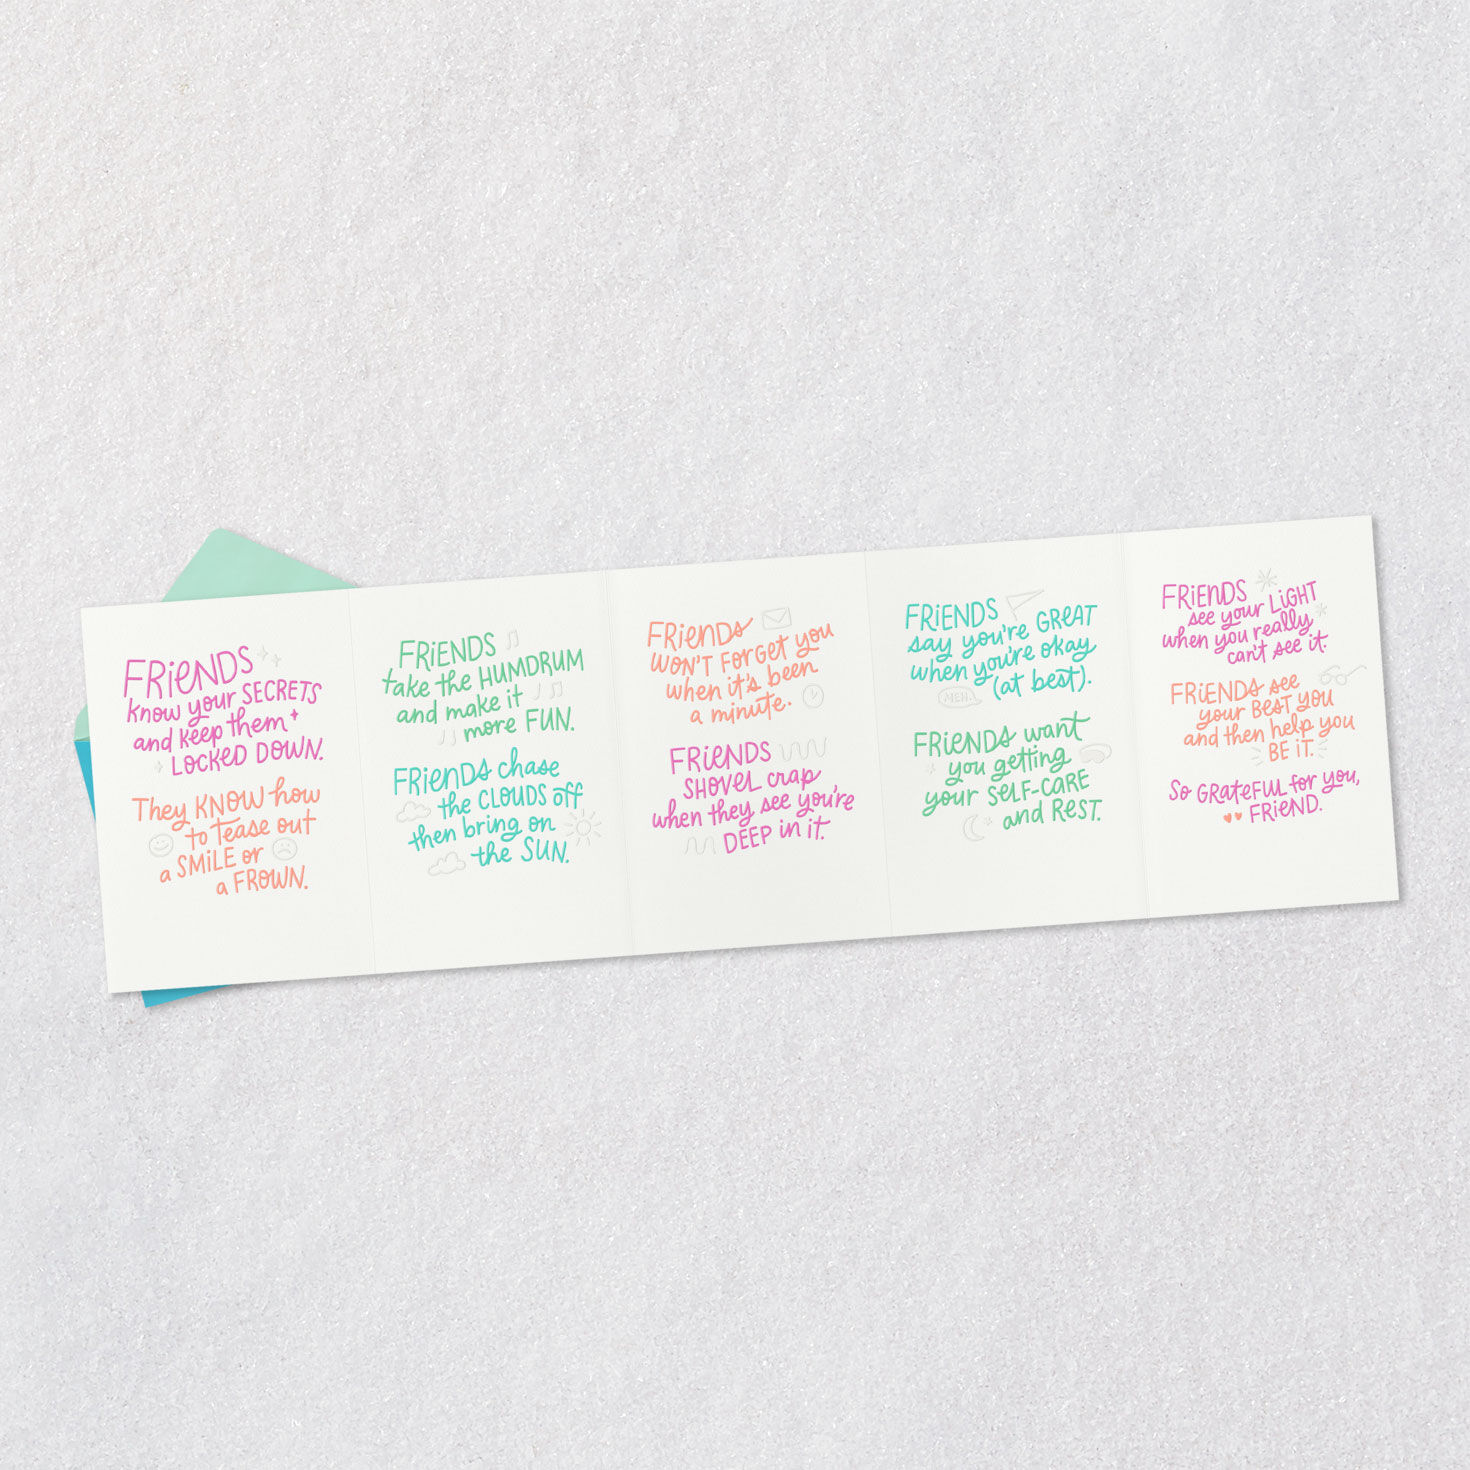 FRiENDS
know your SECRETS
and keep them
LOCKED DOWN.
They KNOW how
to tease out
a SMiLE or
a FROWN.
FRiENDS
take the HUMDRUM
and make it
more FUN.
FRiENDS chase
the CLOUDS off
then bring on
the SUN.
FRiENDS
WON'T FORGET you
when it's been
a minute.
FRiENDS
SHOVEL crap
when they see you're
DEEP in it.
FRiENDS
say you're GREAT
when you're okay
(at best).
MEH.
FRiENDS want
you getting
your SELF-CARE
and REST.
FRiENDS
see your LiGHT
when you really
can't see it.
FRiENDS see
your BEST you
and then help you
BE iT.
So GRATEFUL for you,
FRiEND.